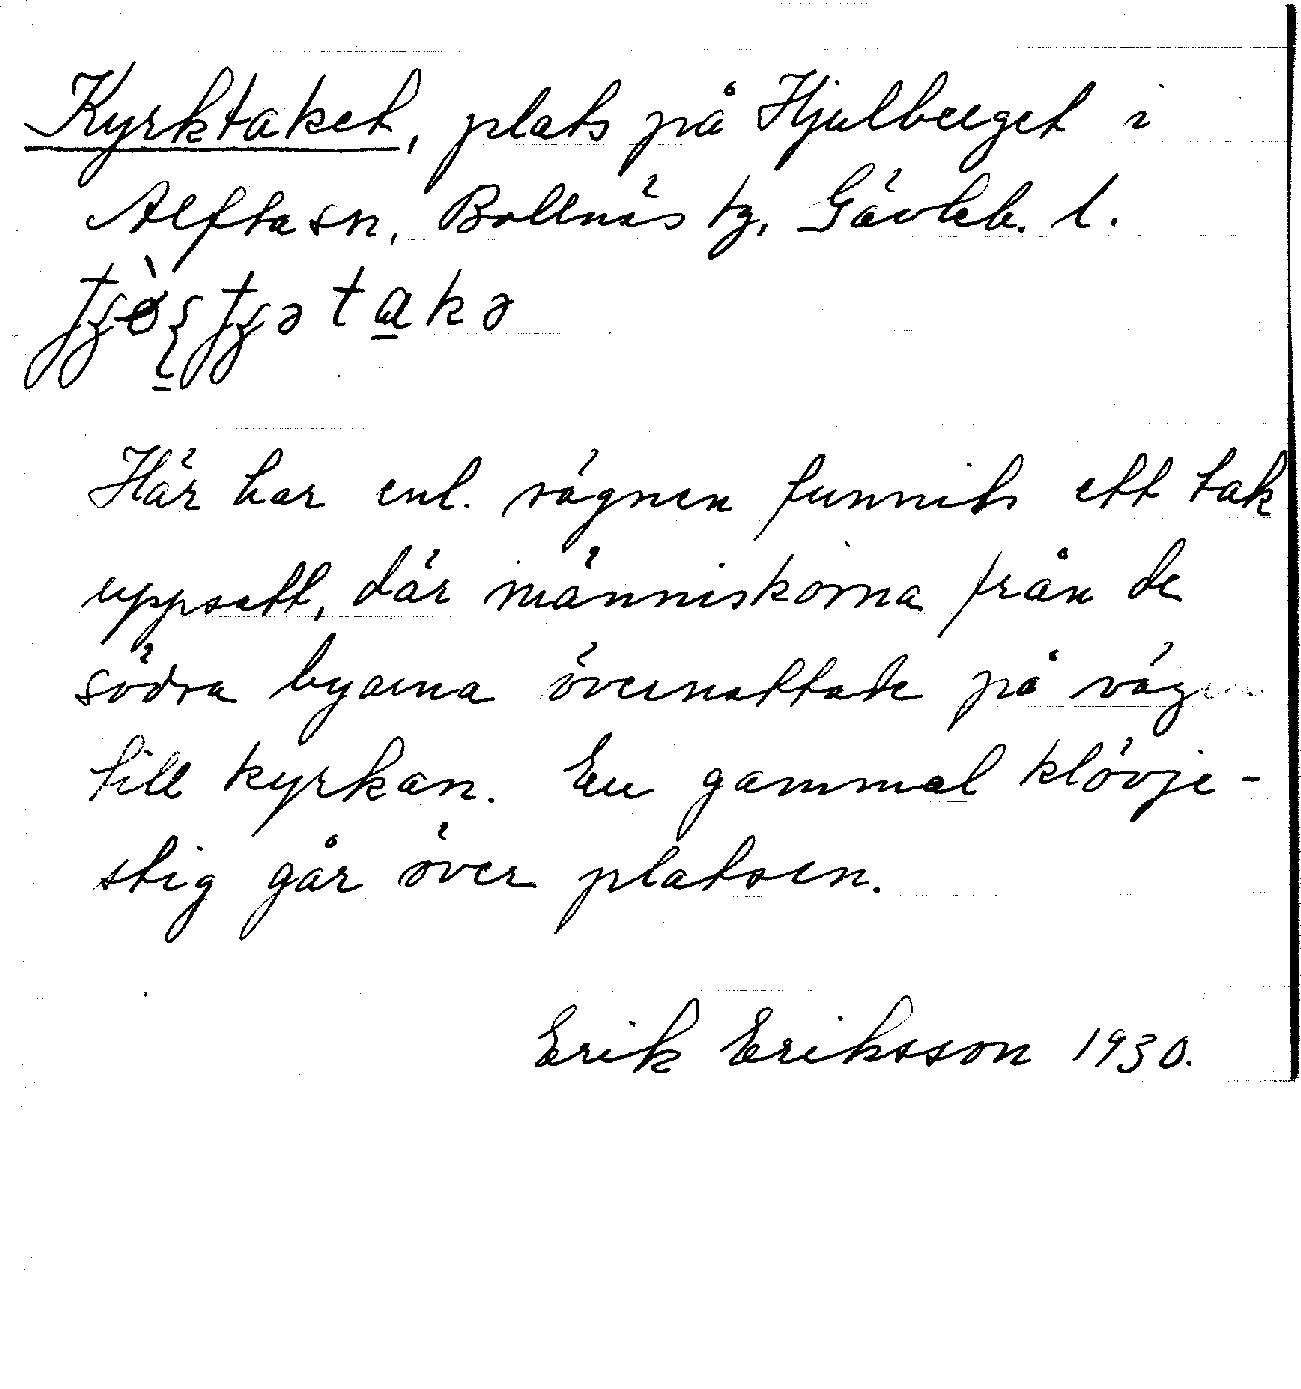 Kyrktaket, plats på Hjulberget i
Alfta sn, Bollnäs tg, Gävleb. l.
Här har enl. sägnen funnits ett tak
uppsatt, där människorna från de
södra byarna övernattade på vägen
till kyrkan. En gammal klövje-
stig går över platsen.
Erik Eriksson 1930.